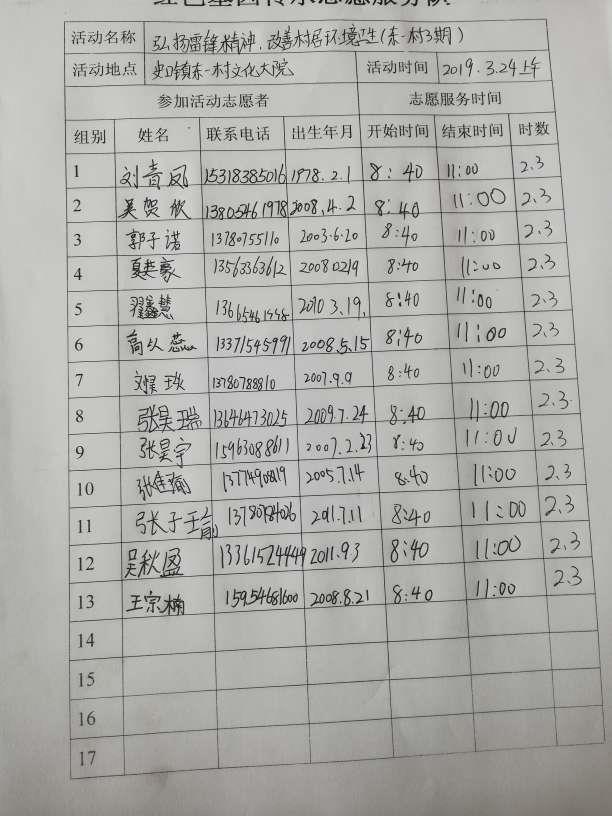 红色基因传承志愿服务队
活动名称 弘扬雷锋精神,改善村居环境卫生(东一村3期)
活动地点 史口镇东一村文化大院 活动时间 2019.3.24上午
参加活动志愿者 志愿服务时间
组别 姓名 联系电话 出生年月 开始时间 结束时间 时数
1 刘青凤 15318385016 1978.2.1 8:40 11:00 2.3
2 吴贺欣 13805461978 2008.4.2 8:40 11:00 2.3
3 郭子诺 13780755110 2003.6.20 8:40 11:00 2.3
4 13563363612 20080219 8:40 11:00 2.3
5 2010.3.19. 8:40 11:00 2.3
6 高以蕊 13371545991 2008.5.15 8:40 11:00 2.3
7 13780788810 2007.9.9 8:40 11:00 2.3
8 张昊瑞 13646473025 2009.7.24 8:40 11:00 2.3
9 张昊宇 15963088611 2007.2.23 8:40 11:00 2.3
10 2005.7.14 8:40 11:00 2.3
11 2011.7.11 8:40 11:00 2.3
12 吴秋盈 13361524449 2011.9.3 8:40 11:00 2.3
13 王宗楠 15954681600 2008.8.21 8:40 11:00 2.3
14
15
16
17